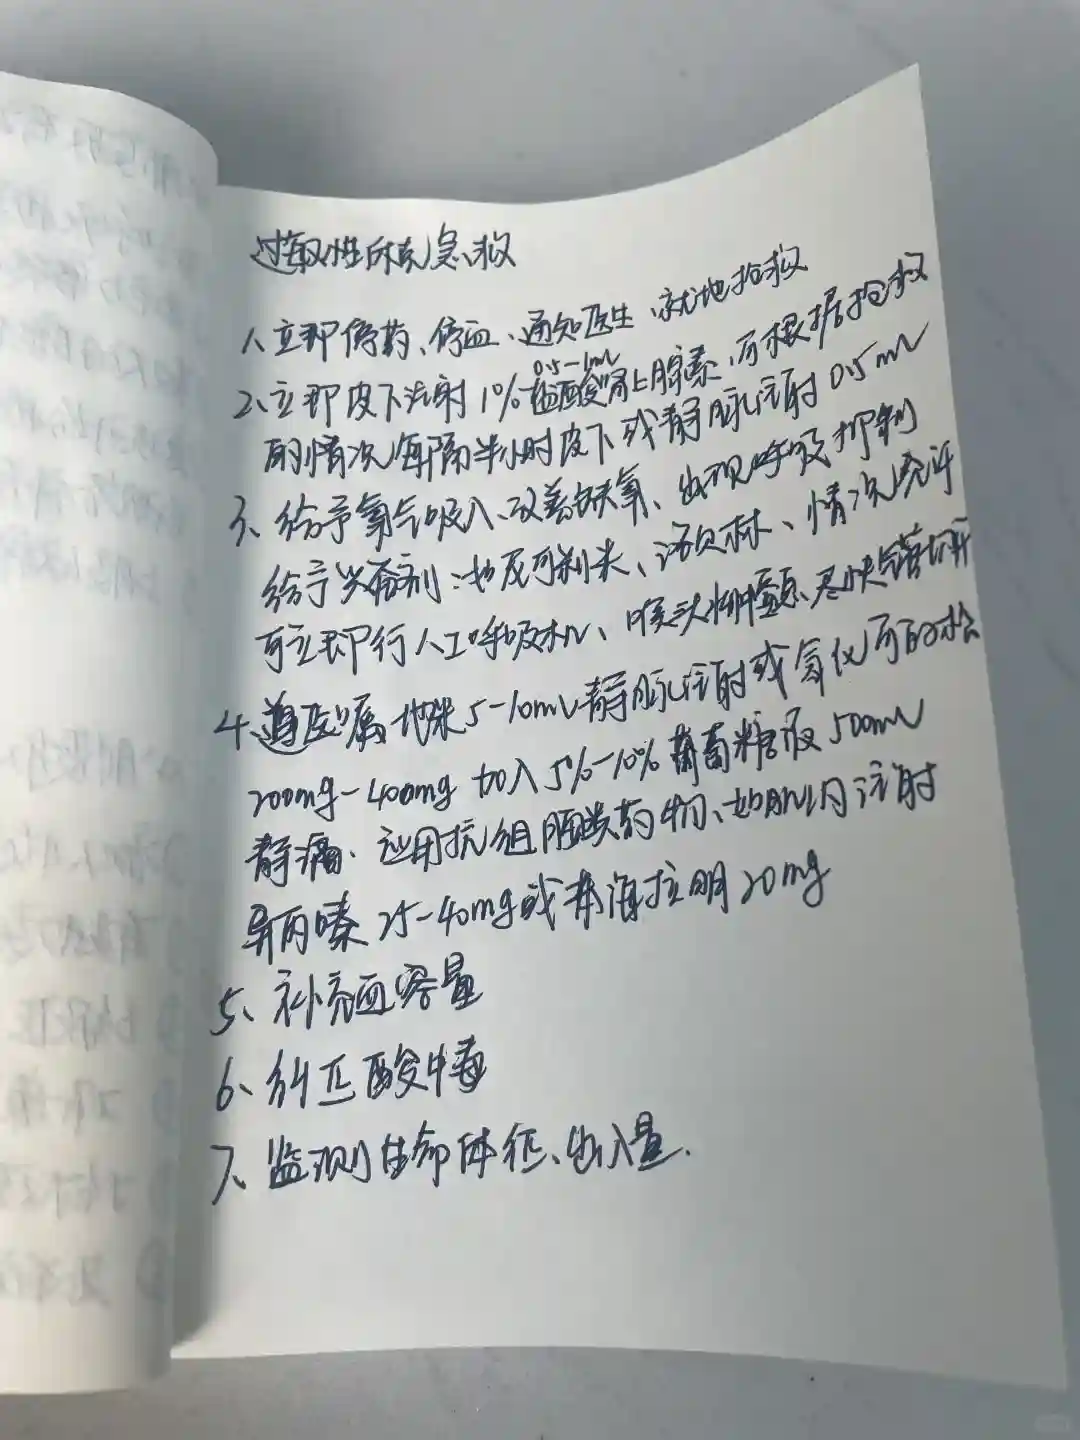 过敏性休克急救
1、立即停药、停血、通知医生、就地抢救
2、立即皮下注射1% 0.5-1ml 盐酸肾上腺素,可根据抢救
时情况每隔半小时皮下或静脉注射0.5ml
3、给予氧气吸入、改善缺氧、出现呼吸抑制
给予兴奋剂:如尼可刹米、洛贝林、情况允许
可立即行人工呼吸机、喉头水肿 尽快气管切开
4、遵医嘱 地米5-10ml静脉注射或氢化可的松
200mg-400mg 加入5%-10%葡萄糖液500ml
静滴、运用抗组胺类药物、如肌内注射
异丙嗪25-40mg或苯海拉明20mg
5、补充血容量
6、纠正酸中毒
7、监测生命体征、出入量.